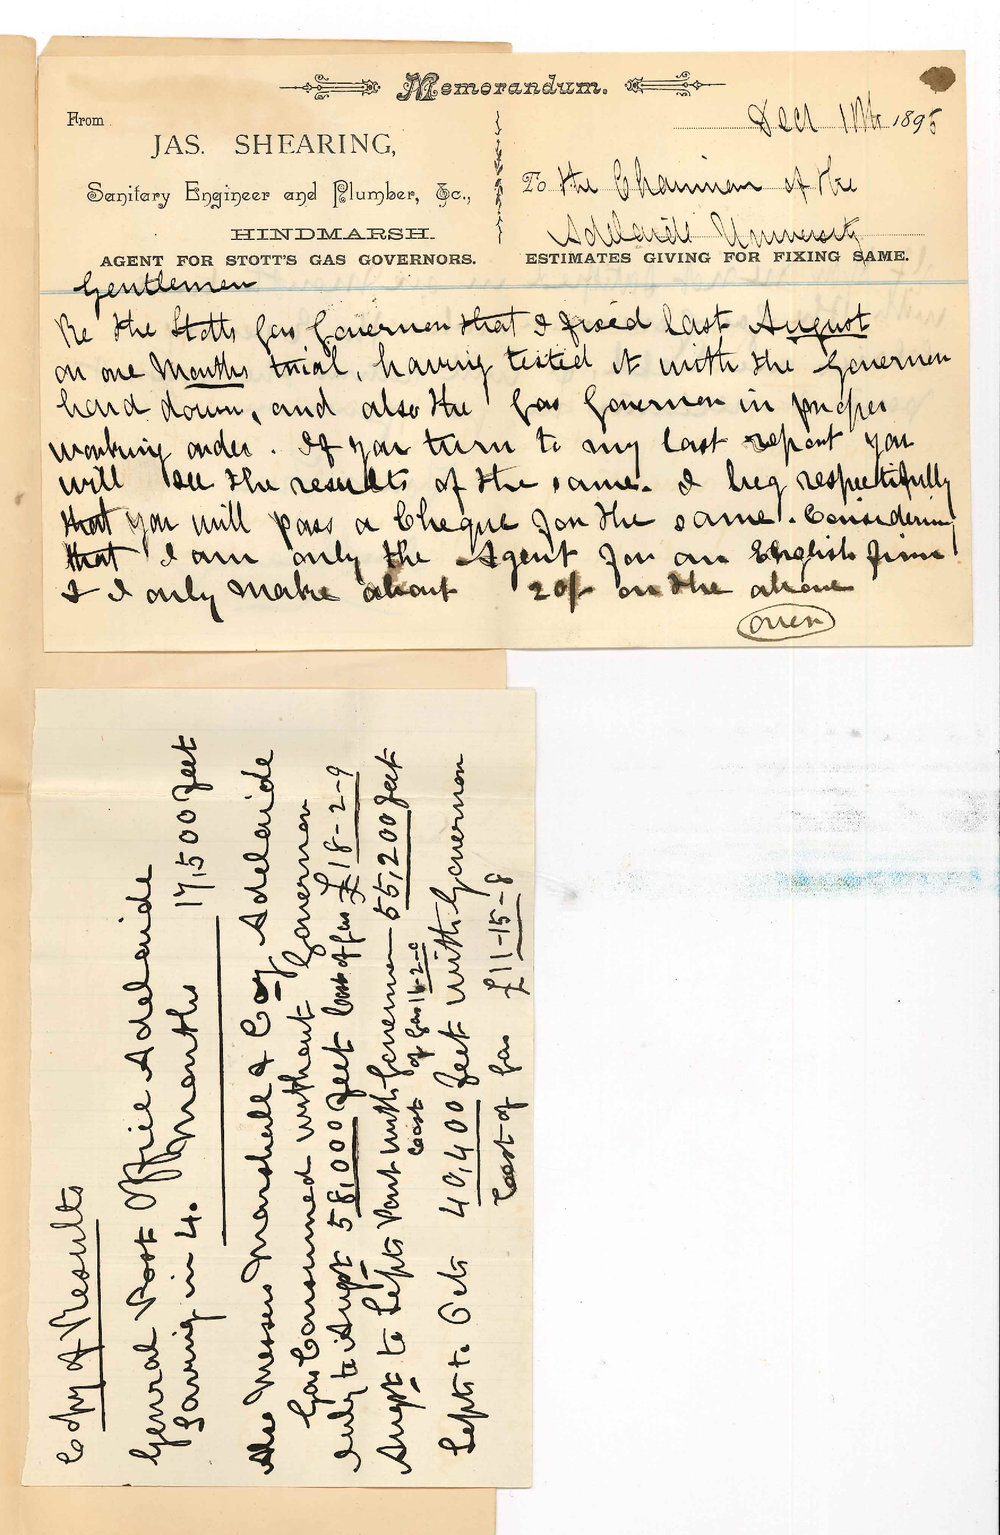 Memorandum.
From
JAS. SHEARING,
Sanitary Engineer and Plumber, &c.,
HINDMARSH.
AGENT FOR STOTT'S GAS GOVERNORS.
Dec 11th 1895
To the Chairman of the
Adelaide University
ESTIMATES GIVING FOR FIXING SAME.
Gentlemen
Re the Stotts Gas Governor that I fixed last August
on one Months trial, having tested it with the Governor
hard down, and also the Gas Governor in proper
working order. If you turn to my last report you
will see the results of the same. I beg respectifully
that you will pass a Cheque for the same. Considering
that I am only the Agent for an English firm
& I only make about 20/- on the above
over
Copy of Results
Genral Post Office Adelaide
Saving in 4. Months 17,500 feet
Also Messers Marshall & Coy Adelaide
Gas Consumed without Governor
July to Augst 58,000 feet Cost of Gas £18-2-9
Augst to Septr Part with Governor 55,200 feet
Cost of Gas 16-2-0
Septr to Octr 40,400 feet with Governor
Cost of Gas £11-15-8